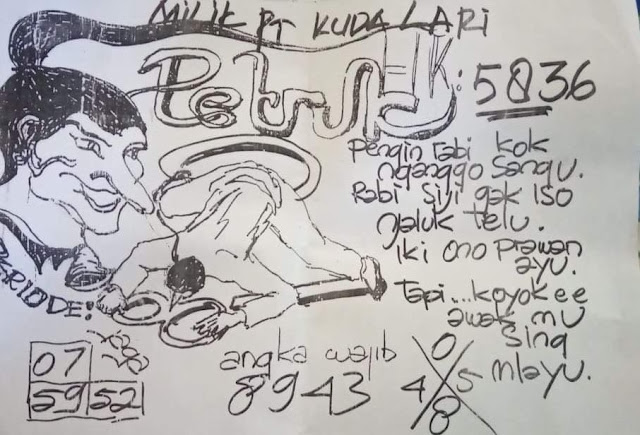 MILIK PT KUDA LARI
Petruk
HK: 5836
Pengin rabi kok
nganggo sangu.
Rabi siji gak iso
njaluk telu.
iki ono prawan
ayu.
Tapi...koyok ee
awak mu
sing
mlayu.
PERIODE!
07
59 52
angka wajib
8943
0
4 5
8